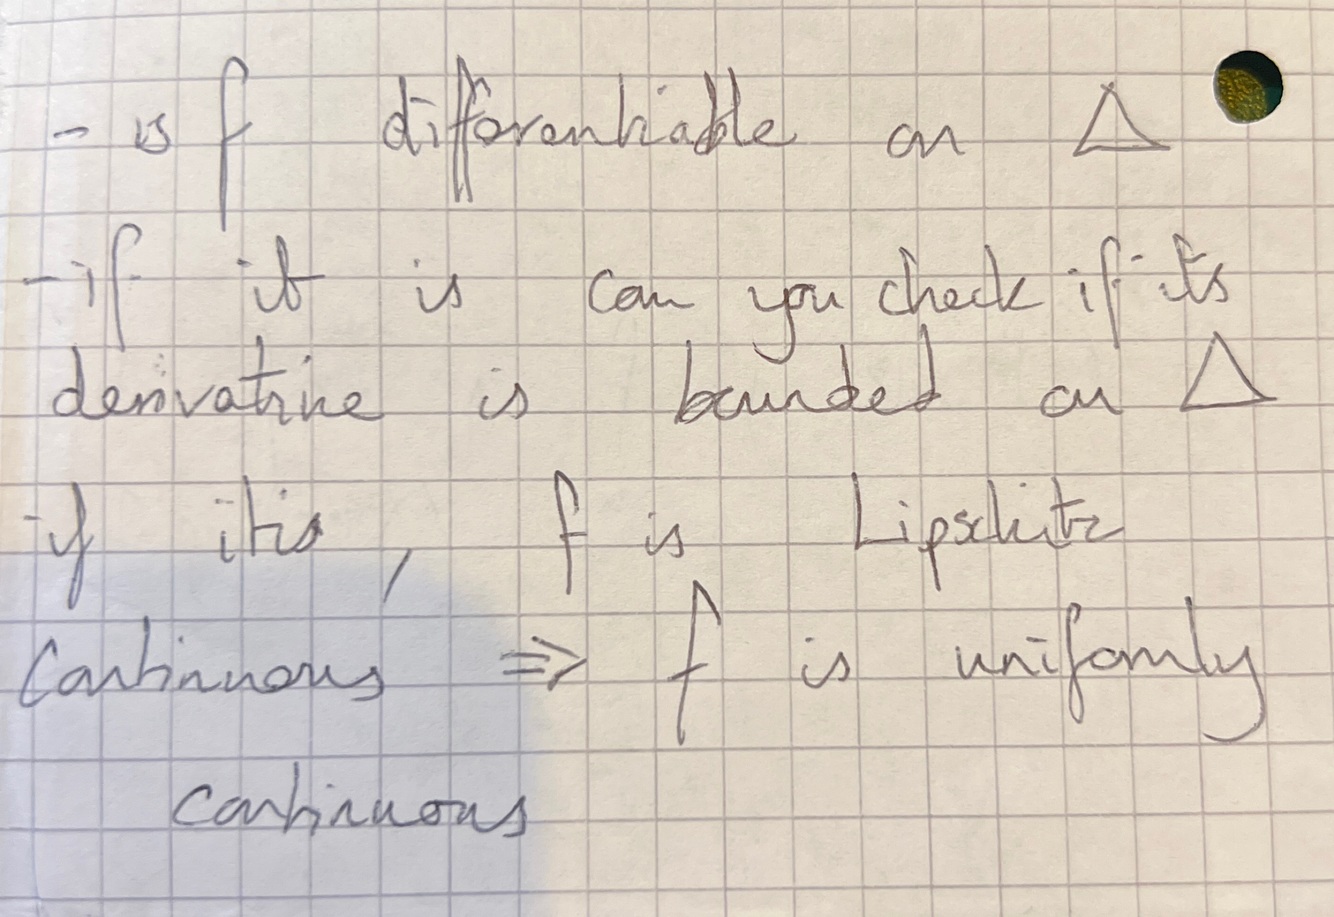 - is f differentiable on △
- if it is can you check if its
derivative is bounded on △
if it is, f is Lipschitz
continuous ⇒ f is uniformly
continuous